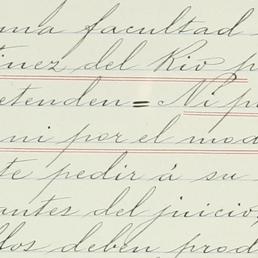 una facultad
tinez del Rio p
etenden = Ni p
ni por el mod
te pedir á su
antes del juicio,
llos deben prod